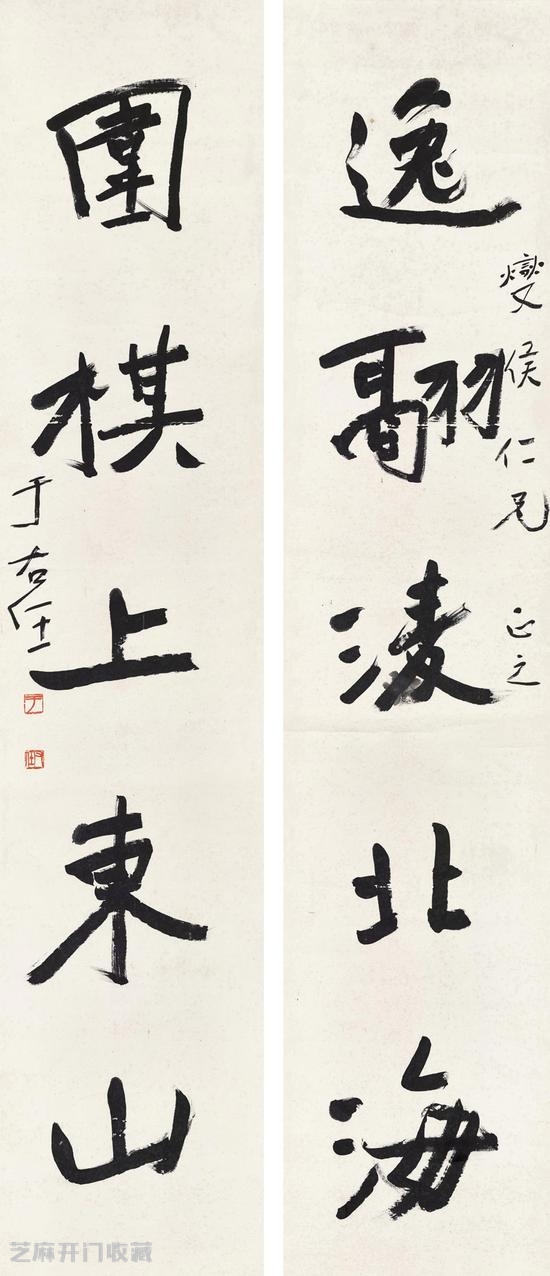 逸翮淩北海
燮侯仁兄 正之
圍棋上東山
于右任
芝麻开门收藏